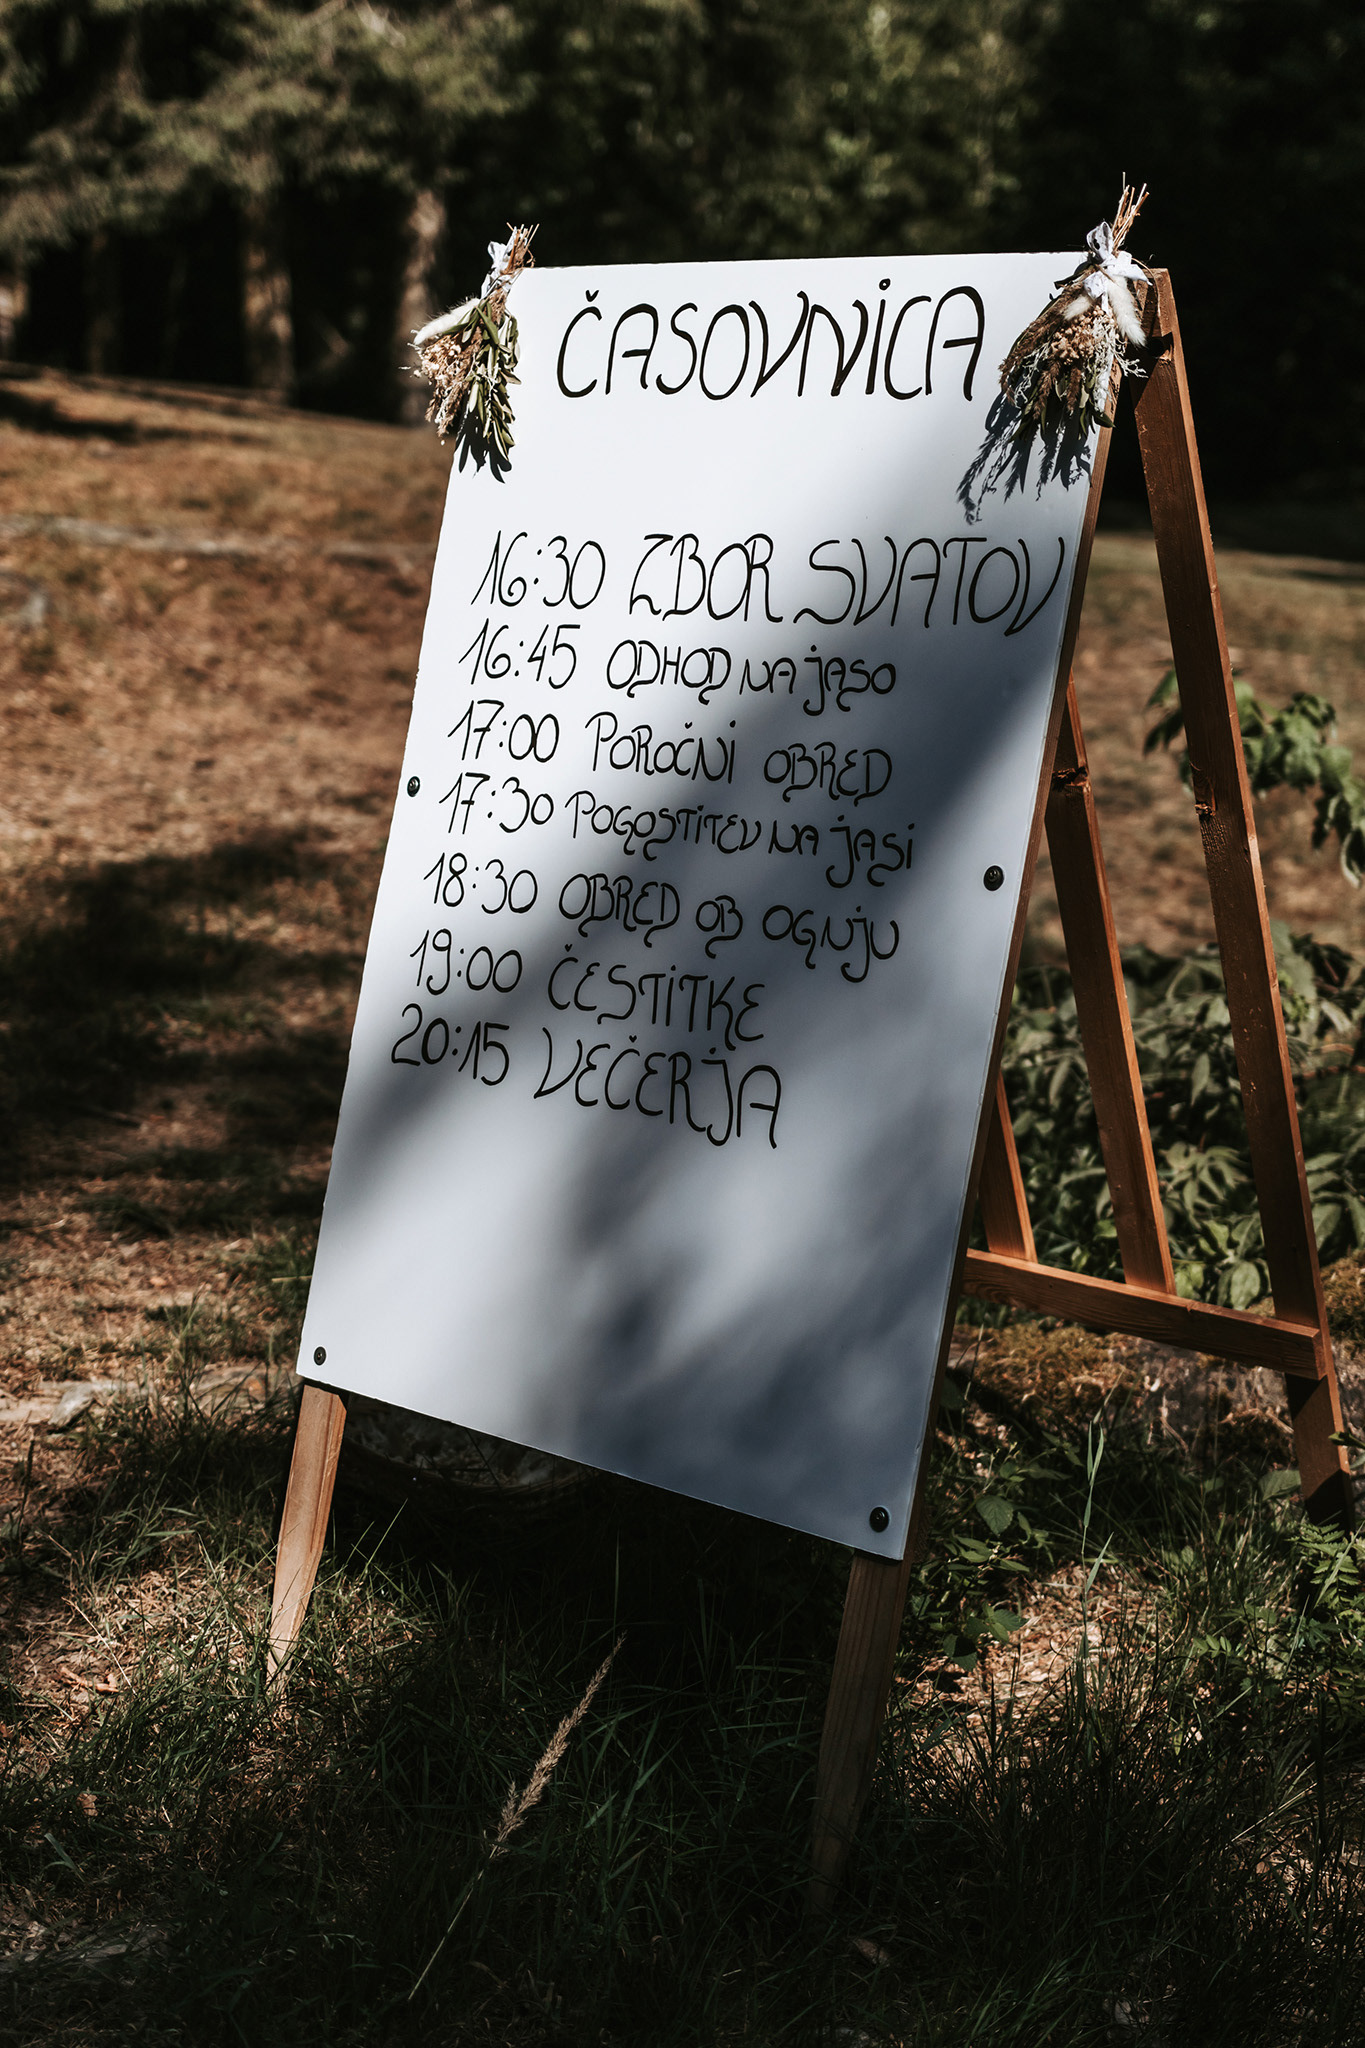 ČASOVNICA
16:30 ZBOR SVATOV
16:45 ODHOD NA JASO
17:00 POROČNI OBRED
17:30 POGOSTITEV NA JASI
18:30 OBRED OB OGNJU
19:00 ČESTITKE
20:15 VEČERJA